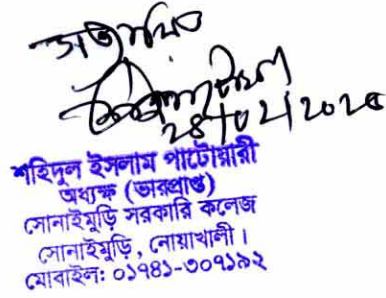 সত্যায়িত
২৪/০২/২০২৫
শহিদুল ইসলাম পাটোয়ারী
অধ্যক্ষ (ভারপ্রাপ্ত)
সোনাইমুড়ি সরকারি কলেজ
সোনাইমুড়ি, নোয়াখালী।
মোবাইল: ০১৭৪১-৩০৭১৯২